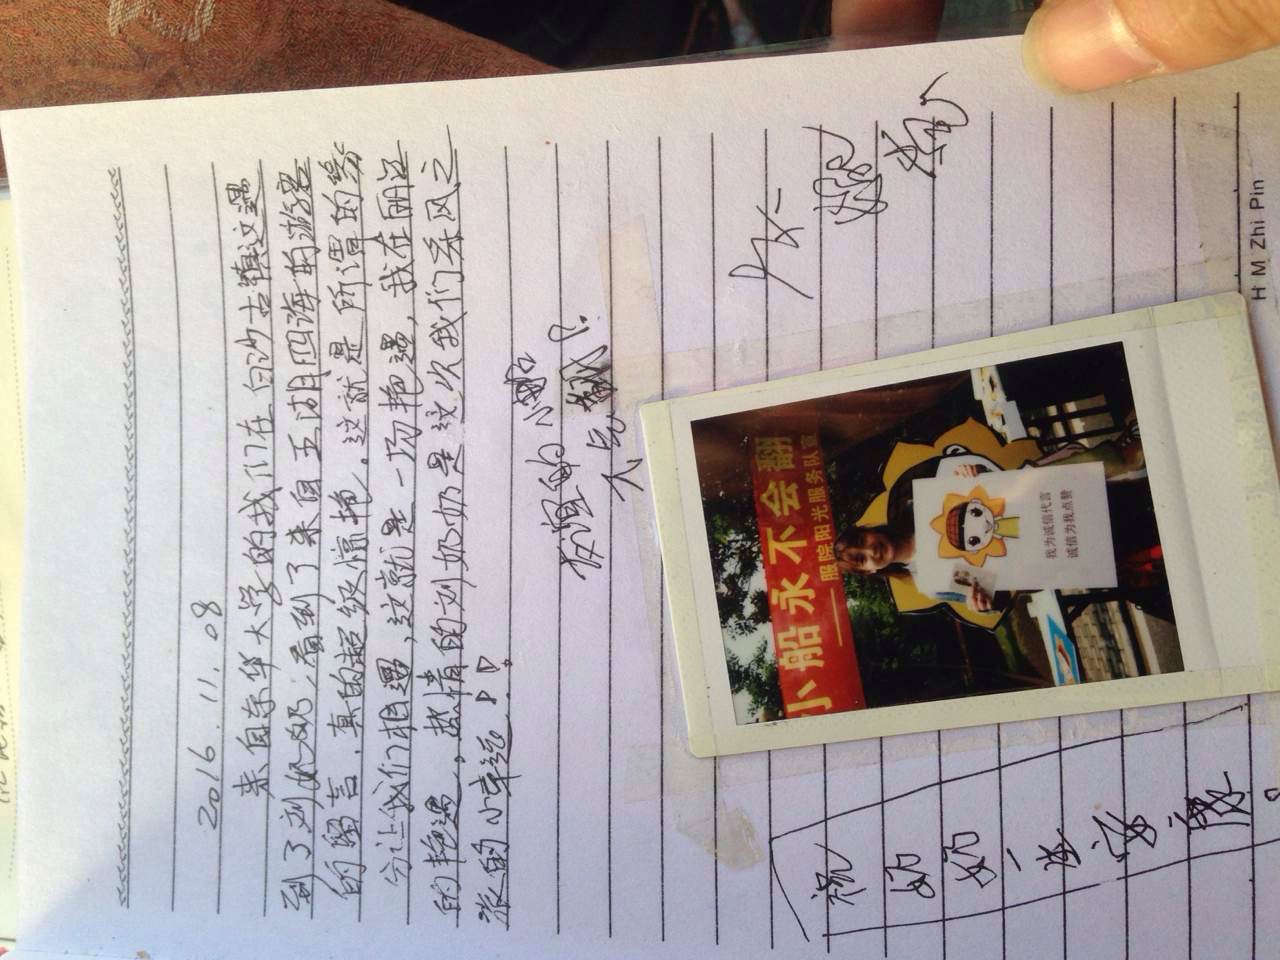 2016.11.08
来自东华大学的我们在白沙古镇这遇
到了刘奶奶;看到了来自五湖四海的游客
的留言,真的超级惊艳。这就是所谓的缘
分让我们相遇,这就是一场艳遇,我在丽江
的艳遇。热情的刘奶奶是这次我们采风之
旅的小幸运!!
友谊的小船
不会翻!
小船永不会翻
——服院阳光服务队宣
我为诚信代言
诚信为我点赞
祝奶奶一生安康!
H M Zhi Pin